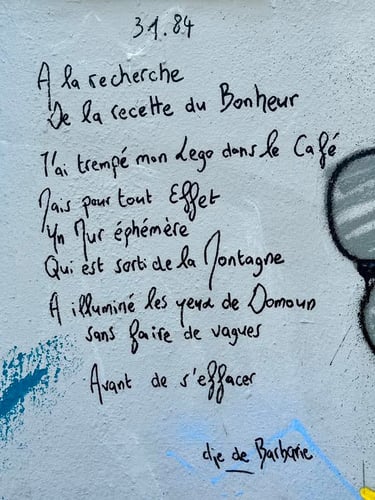 31.84
A la recherche
De la recette du Bonheur
J'ai trempé mon Lego dans le Café
Mais pour tout Effet
Un Mur éphémère
Qui est sorti de la Montagne
A illuminé les yeux de Domoun
sans faire de vagues
Avant de s'effacer
de Barbarie